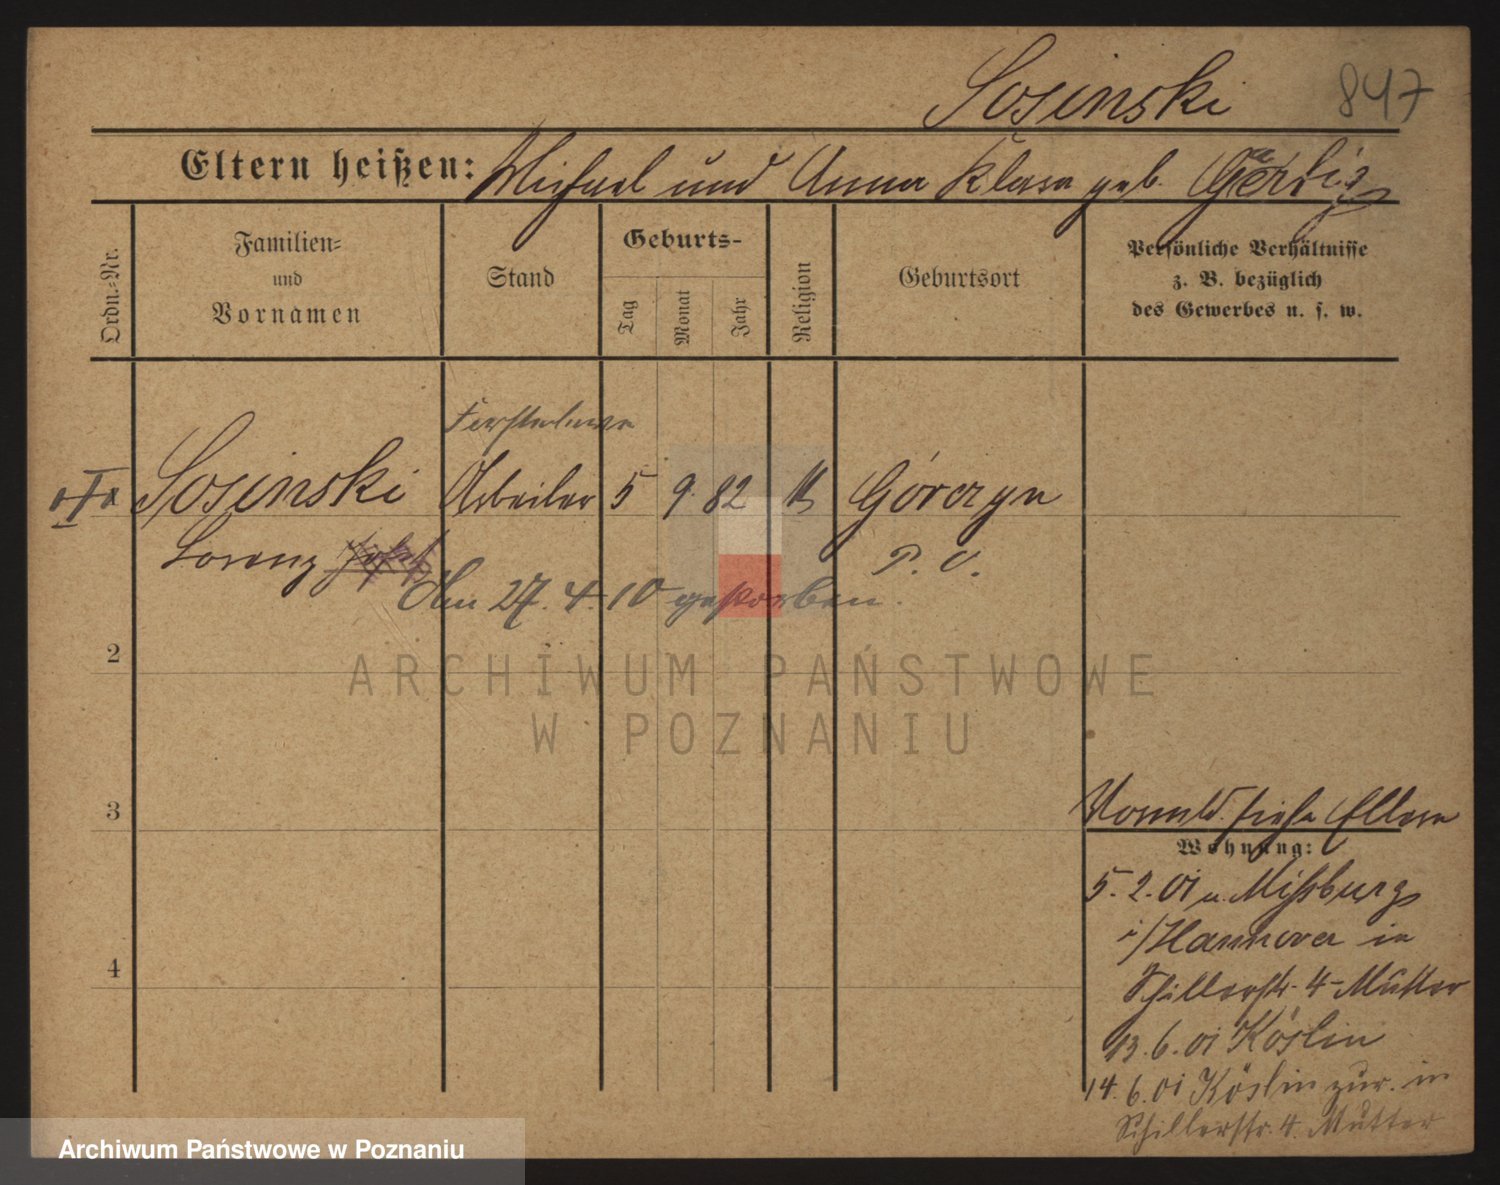 Sosinski
847
Eltern heißen: Michael und Anna Klara geb. Görtig
Ordn.-Nr.
Familien-
und
Vornamen
Stand
Geburts-
Tag
Monat
Jahr
Religion
Geburtsort
Persönliche Verhältnisse
z. B. bezüglich
des Gewerbes u. s. w.
Sosinski Arbeiter 5 9. 82 k Górczyn
Lorenz P. O.
Am 27. 4. 10 gestorben.
2
ARCHIWUM PAŃSTWOWE
W POZNANIU
3
Vormld. siehe Eltern
Wohnung:
5. 2. 01 n. Mißburg
i/Hannover in
Schillerstr. 4 Mutter
4
13. 6. 01 Köslin
14. 6. 01 Köslin zur. in
Schillerstr. 4. Mutter
Archiwum Państwowe w Poznaniu